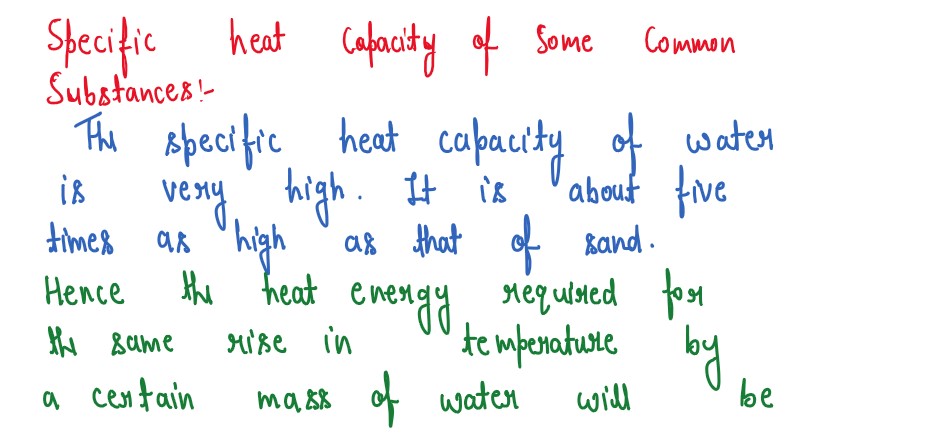 Specific heat Capacity of Some Common
Substances:-
The specific heat capacity of water
is very high. It is about five
times as high as that of sand.
Hence the heat energy required for
the same rise in temperature by
a certain mass of water will be